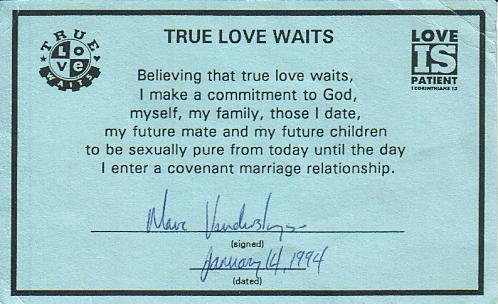 TRUE LOVE WAITS
TRUE
LOVE
WAITS
LOVE
IS
PATIENT
1 CORINTHIANS 13
Believing that true love waits,
I make a commitment to God,
myself, my family, those I date,
my future mate and my future children
to be sexually pure from today until the day
I enter a covenant marriage relationship.
Marc
(signed)
January 14, 1994
(dated)